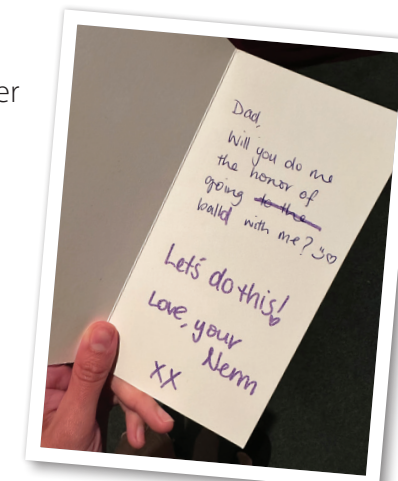 er
Dad,
Will you do me
the honor of
going to the
balld with me? :)♡
Let's do this!
Love, your
Nerm
XX